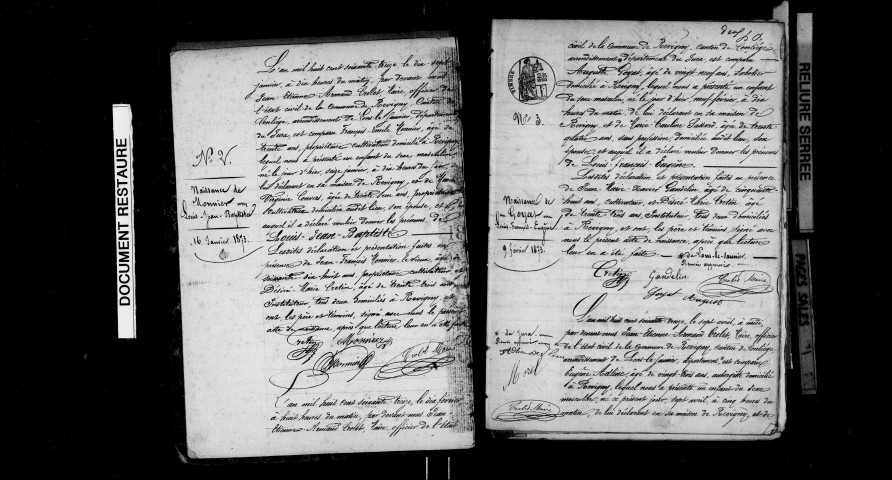 DOCUMENT RESTAURE
L'an mil huit cent soixante treize le dix sept
janvier, à dix heures du matin, par devant nous
Jean Etienne Armand Trolet, Maire, officier de
l'état civil de la commune de Revigny, Canton de
Conliège, arrondissement de Lons le Saunier, département
du Jura, est comparu François Emile Monnier, âgé de
trente ans, propriétaire cultivateur domicilié à Revigny
lequel nous a présenté un enfant du sexe masculin
né le jour d'hier, seize janvier, à dix heures du
lui déclarant en sa maison de Revigny, et de Marie
Virginie âgée de trente un ans, propriétaire
cultivatrice domiciliée audit lieu, son épouse, et
auquel il a déclaré vouloir donner les prénoms de
Louis-Jean-Baptiste
Lesdites déclaration et présentation faites en
présence de Jean François Monnier, le vieux, âgé de
soixante dix huit ans, propriétaire cultivateur et
Désiré Marie Cretin, âgé de trente trois ans
Instituteur, tous deux domiciliés à Revigny et
ont les père et témoins, signé avec nous le présent
acte de naissance, après que lecture leur en a été faite
Cretin Monnier
Monnier Trolet Maire
L'an mil huit cent soixante treize, le dix février
à huit heures du matin, par devant nous Jean-
Etienne Armand Trolet, Maire, officier de l'état
N° 2.
Naissance de
Monnier
Louis-Jean-Baptiste
16 Janvier 1873.
civil de la commune de Revigny, canton de Conliège
arrondissement département du Jura, est comparu
Auguste Goyat, âgé de vingt neuf ans, Sabotier
domicilié à Revigny, lequel nous a présenté un enfant
du sexe masculin, né le jour d'hier, neuf février, à dix
heures du matin, de lui déclarant en sa maison de
Revigny et de Marie Caroline âgée de trente
quatre ans, sans profession domiciliée audit lieu, son
épouse, et auquel il a déclaré vouloir donner les prénoms
de Louis François Eugène.
Lesdites déclaration et présentation faites en présence
de Jean Marie Xavier Gandelin âgé de cinquante
huit ans, cultivateur, et Désiré Marie Cretin âgé
de trente trois ans, Instituteur, tous deux domiciliés
à Revigny, et ont les père et témoins signé avec
nous le présent acte de naissance, après que lecture
leur en a été faite. de Lons-le-Saunier
Cretin Gandelin Trolet Maire
Goyat Auguste
L'an mil huit cent soixante treize, le sept avril, à midi,
par devant nous Jean Etienne Armand Trolet, Maire, officier
de l'état civil de la commune de Revigny, canton de Conliège
arrondissement de Lons-le-Saunier, département, est comparu
Eugène âgé de vingt trois ans, domicilié
à Revigny, lequel nous a présenté un enfant du sexe
masculin, né ce présent jour, sept avril, à cinq heures du
matin, de lui déclarant en sa maison de Revigny, et de
N° 3.
Naissance de
Goyat
Louis-François-Eugène
9 février 1873.
du Jura
Morel
Trolet Maire
RELIURE SERREE
PAGES SALES